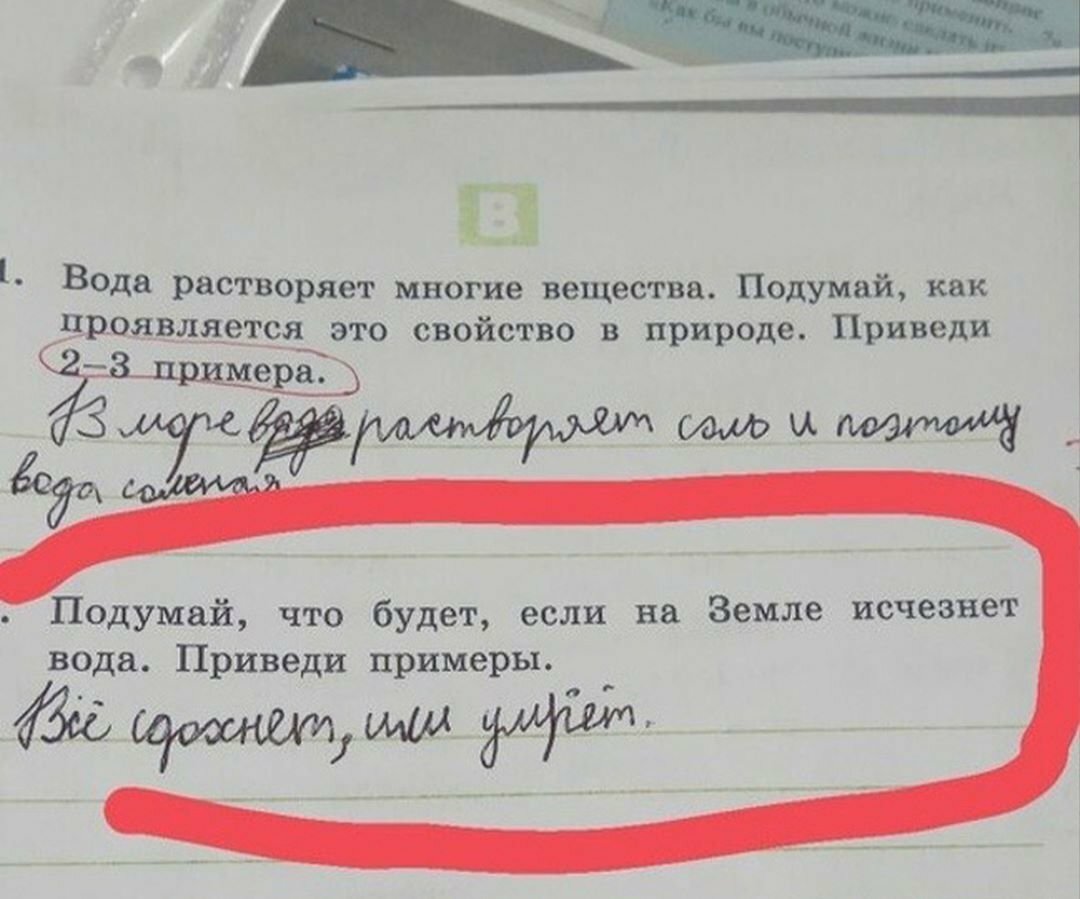 применить.
можно сделать
в обычной жизни
«Как бы вы поступи
В
1. Вода растворяет многие вещества. Подумай, как
проявляется это свойство в природе. Приведи
2–3 примера.
В море растворяет соль и поэтому
вода соленая
. Подумай, что будет, если на Земле исчезнет
вода. Приведи примеры.
Всё сдохнет, или умрёт.